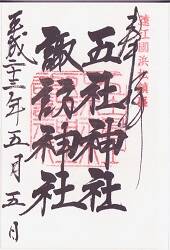 奉拝
遠江國浜松鎮座
五社神社
諏訪神社
平成二十三年五月五日